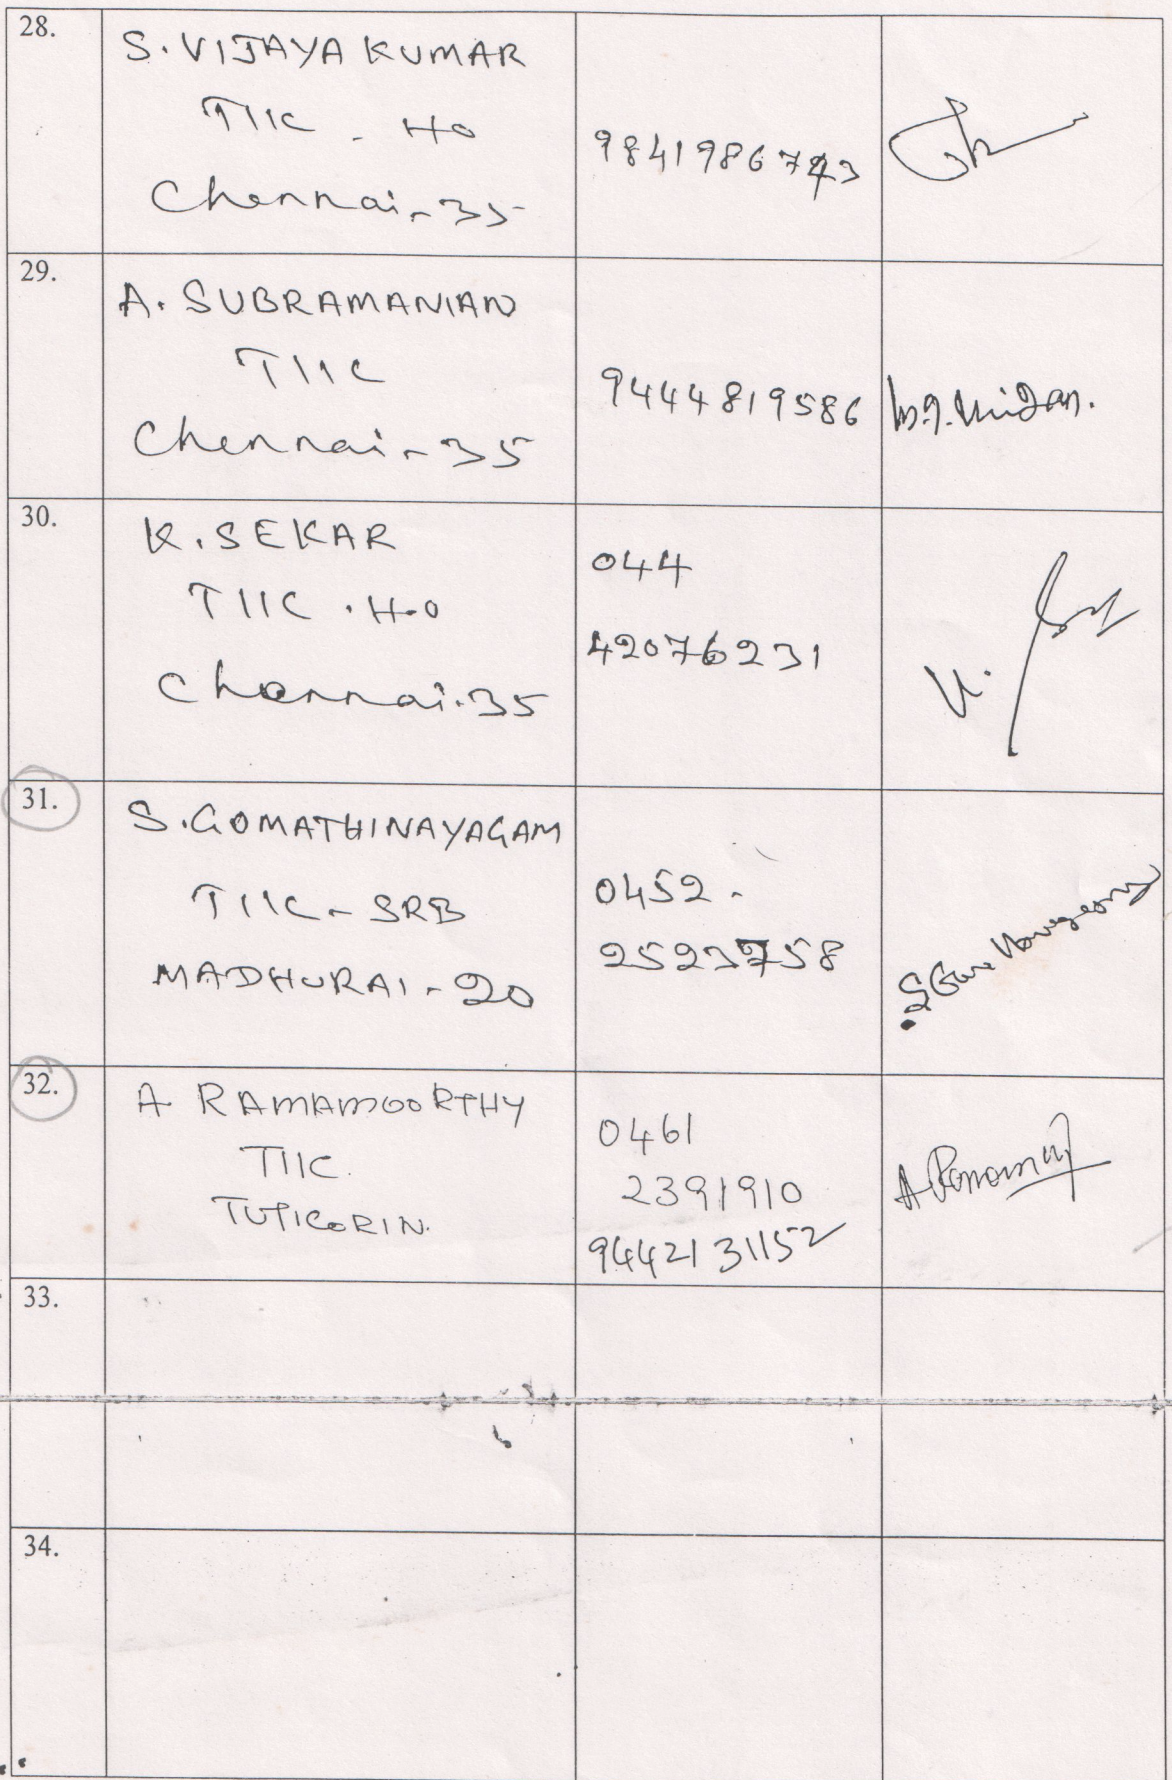 28.
S. VIJAYA KUMAR
TIIC - HO
Chennai - 35
9841986743
29.
A. SUBRAMANIAN
TIIC
Chennai - 35
9444819586
30.
K. SEKAR
TIIC . H.O
Chennai.35
044
42076231
31.
S. GOMATHINAYAGAM
TIIC - SRB
MADHURAI - 20
0452 -
2523758
32.
A RAMAMOORTHY
TIIC.
TUTICORIN.
0461
2391910
9442131152
33.
34.